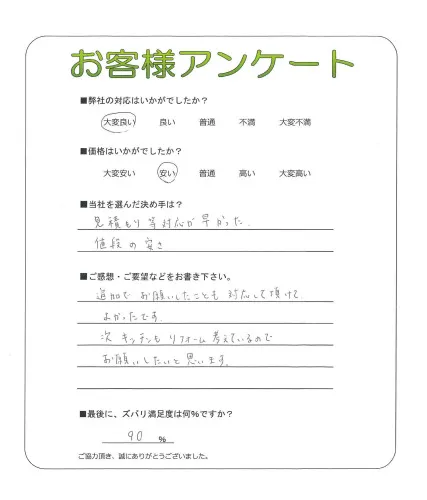 お客様アンケート
■弊社の対応はいかがでしたか?
大変良い 良い 普通 不満 大変不満
■価格はいかがでしたか?
大変安い 安い 普通 高い 大変高い
■当社を選んだ決め手は?
見積もり等対応が早かった.
値段の安さ
■ご感想・ご要望などをお書き下さい。
追加でお願いしたことも対応して頂けて
よかったです.
次キッチンもリフォーム考えているので
お願いしたいと思います.
■最後に、ズバリ満足度は何%ですか?
90 %
ご協力頂き、誠にありがとうございました。